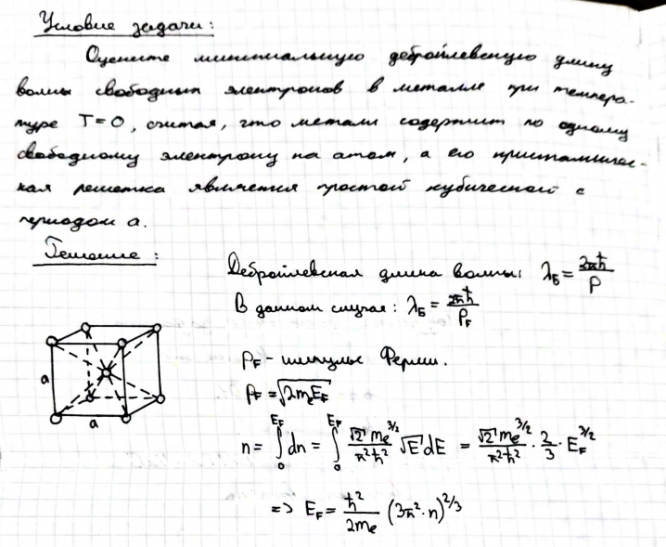 Условие задачи:
Оцените минимальную дебройлевскую длину
волны свободных электронов в металле при темпера-
туре T=0, считая, что металл содержит по одному
свободному электрону на атом, а его кристалличес-
кая решетка является простой кубической с
периодом a.
Решение:
Дебройлевская длина волны: λ_Б = 2πħ/P
В данном случае: λ_Б = 2πħ/P_F
a
a
P_F - импульс Ферми.
P_F = √(2m_e E_F)
n = ∫₀^{E_F} dn = ∫₀^{E_F} (√2 m_e^{3/2})/(π²ħ²) √E dE = (√2 m_e^{3/2})/(π²ħ²) · 2/3 · E_F^{3/2}
=> E_F = ħ²/(2m_e) (3π²·n)^{2/3}